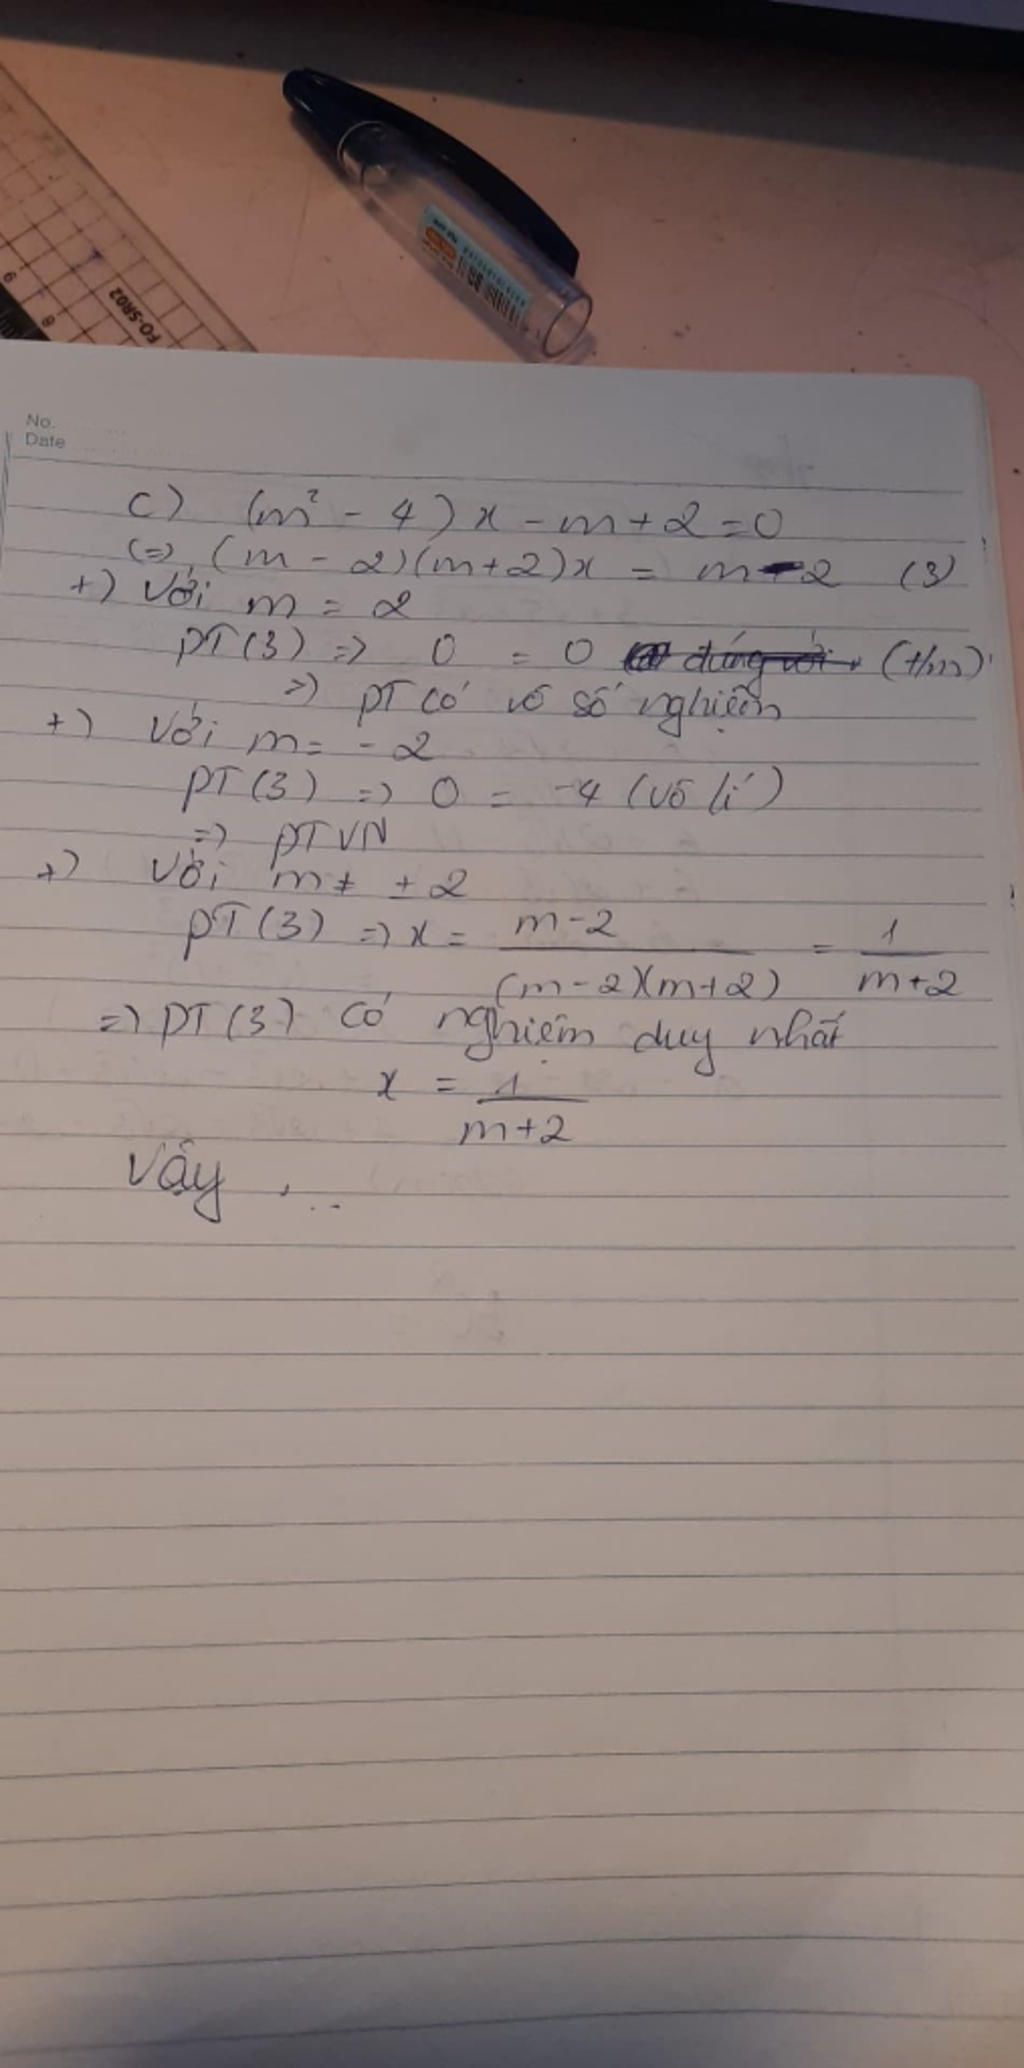 FO-SR02
9
8
No.
Date
c) (m² - 4)x - m + 2 = 0
(=) (m - 2)(m+2)x = m - 2 (3)
+) Với m = 2
PT(3) => 0 = 0 đúng với (t/m)
=) PT có vô số nghiệm
+) Với m = -2
PT(3) => 0 = -4 (vô lí)
=> PTVN
+) Với m ≠ ±2
PT(3) => x = m-2/(m-2)(m+2) = 1/m+2
=> PT(3) có nghiệm duy nhất
x = 1/m+2
Vậy ...